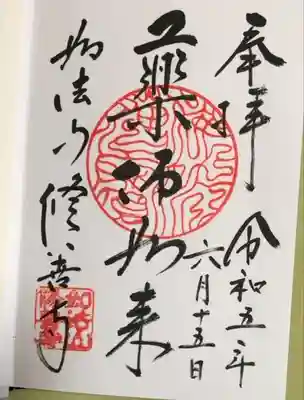 奉拝
令和五年
六月十五日
藥師如来
如法山修善寺